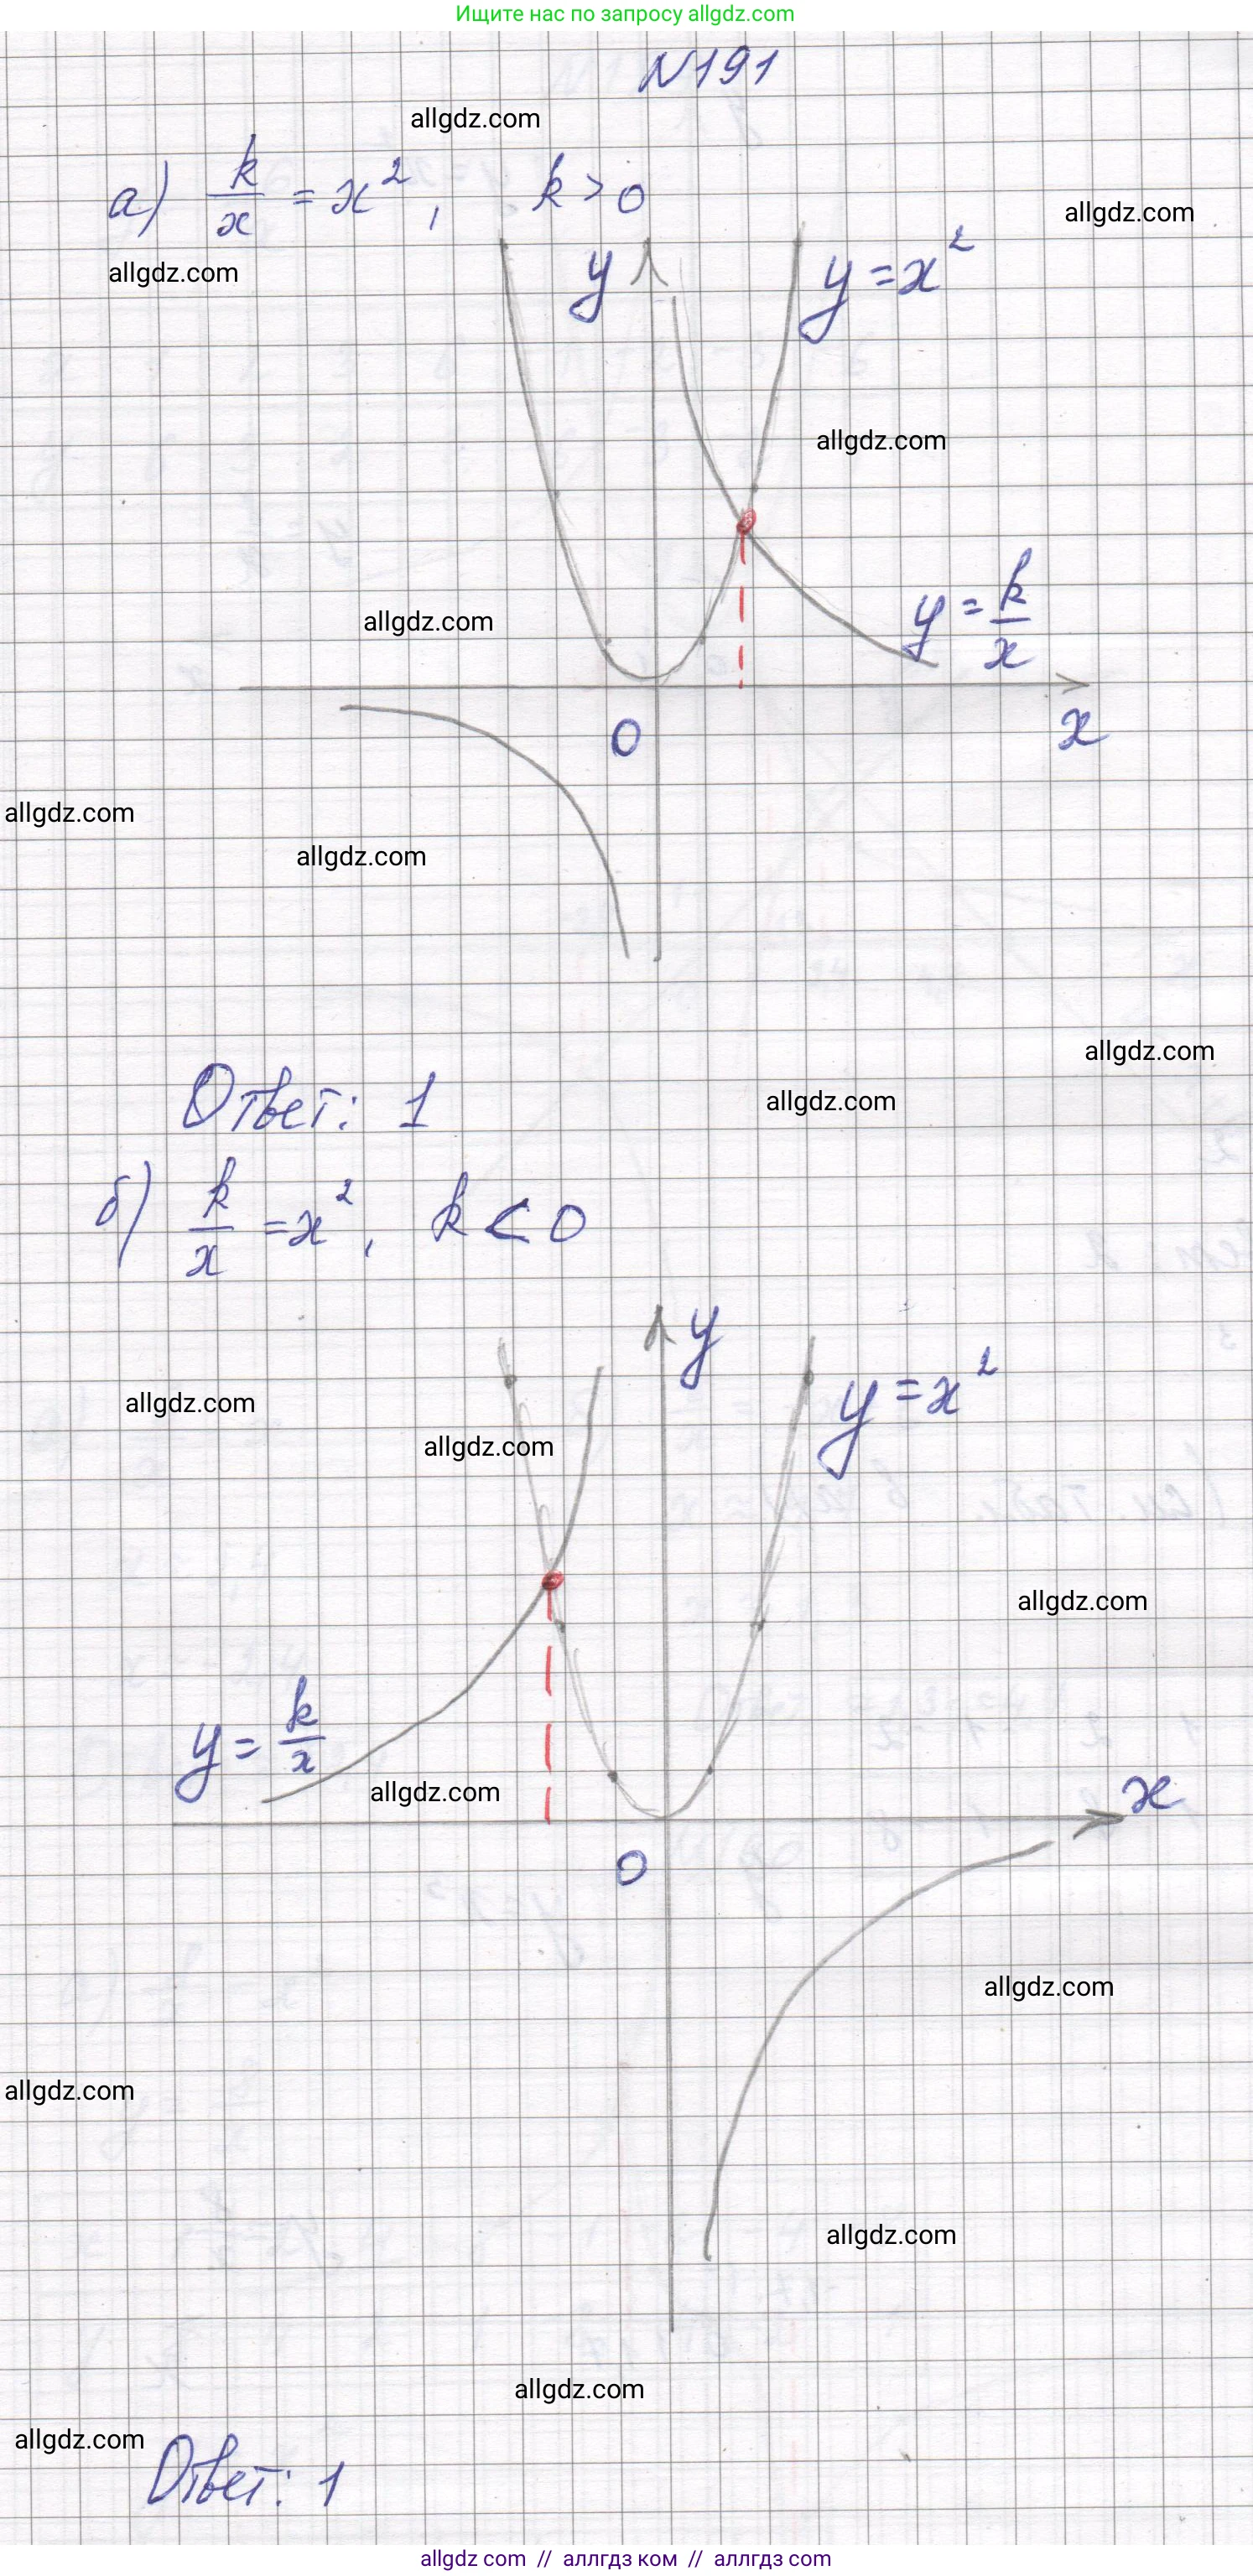 Ищите нас по запросу allgdz.com
N191
allgdz.com
а) k/x = x², k > 0
allgdz.com
allgdz.com
y
y = x²
allgdz.com
allgdz.com
y = k/x
0
x
allgdz.com
allgdz.com
allgdz.com
Ответ: 1
allgdz.com
б) k/x = x², k < 0
y
y = x²
allgdz.com
allgdz.com
allgdz.com
y = k/x
allgdz.com
x
0
allgdz.com
allgdz.com
allgdz.com
allgdz.com
allgdz.com
Ответ: 1
allgdz.com // аллгдз ком // аллгдз.com